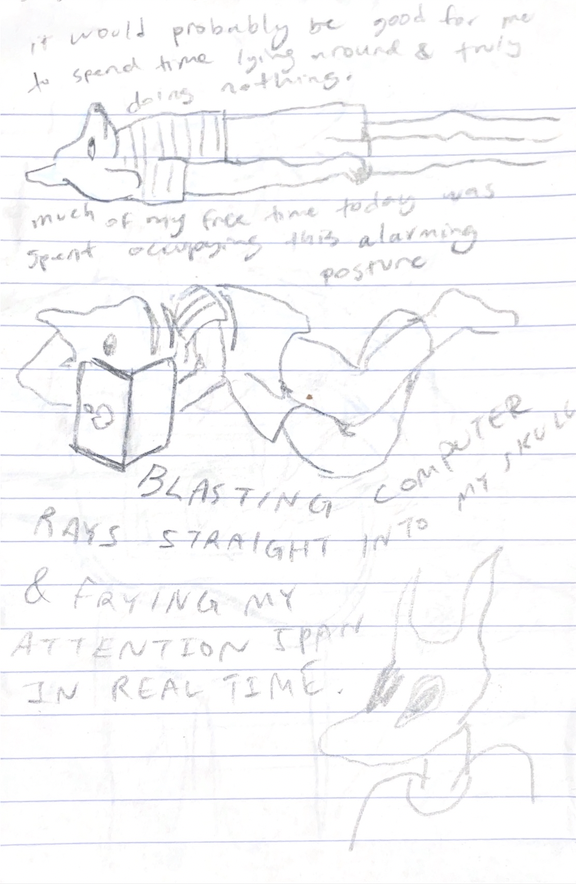 it would probably be good for me
to spend time lying around & truly
doing nothing.
much of my free time today was
spent occupying this alarming
posture
BLASTING COMPUTER
RAYS STRAIGHT INTO MY SKULL
& FRYING MY
ATTENTION SPAN
IN REAL TIME.